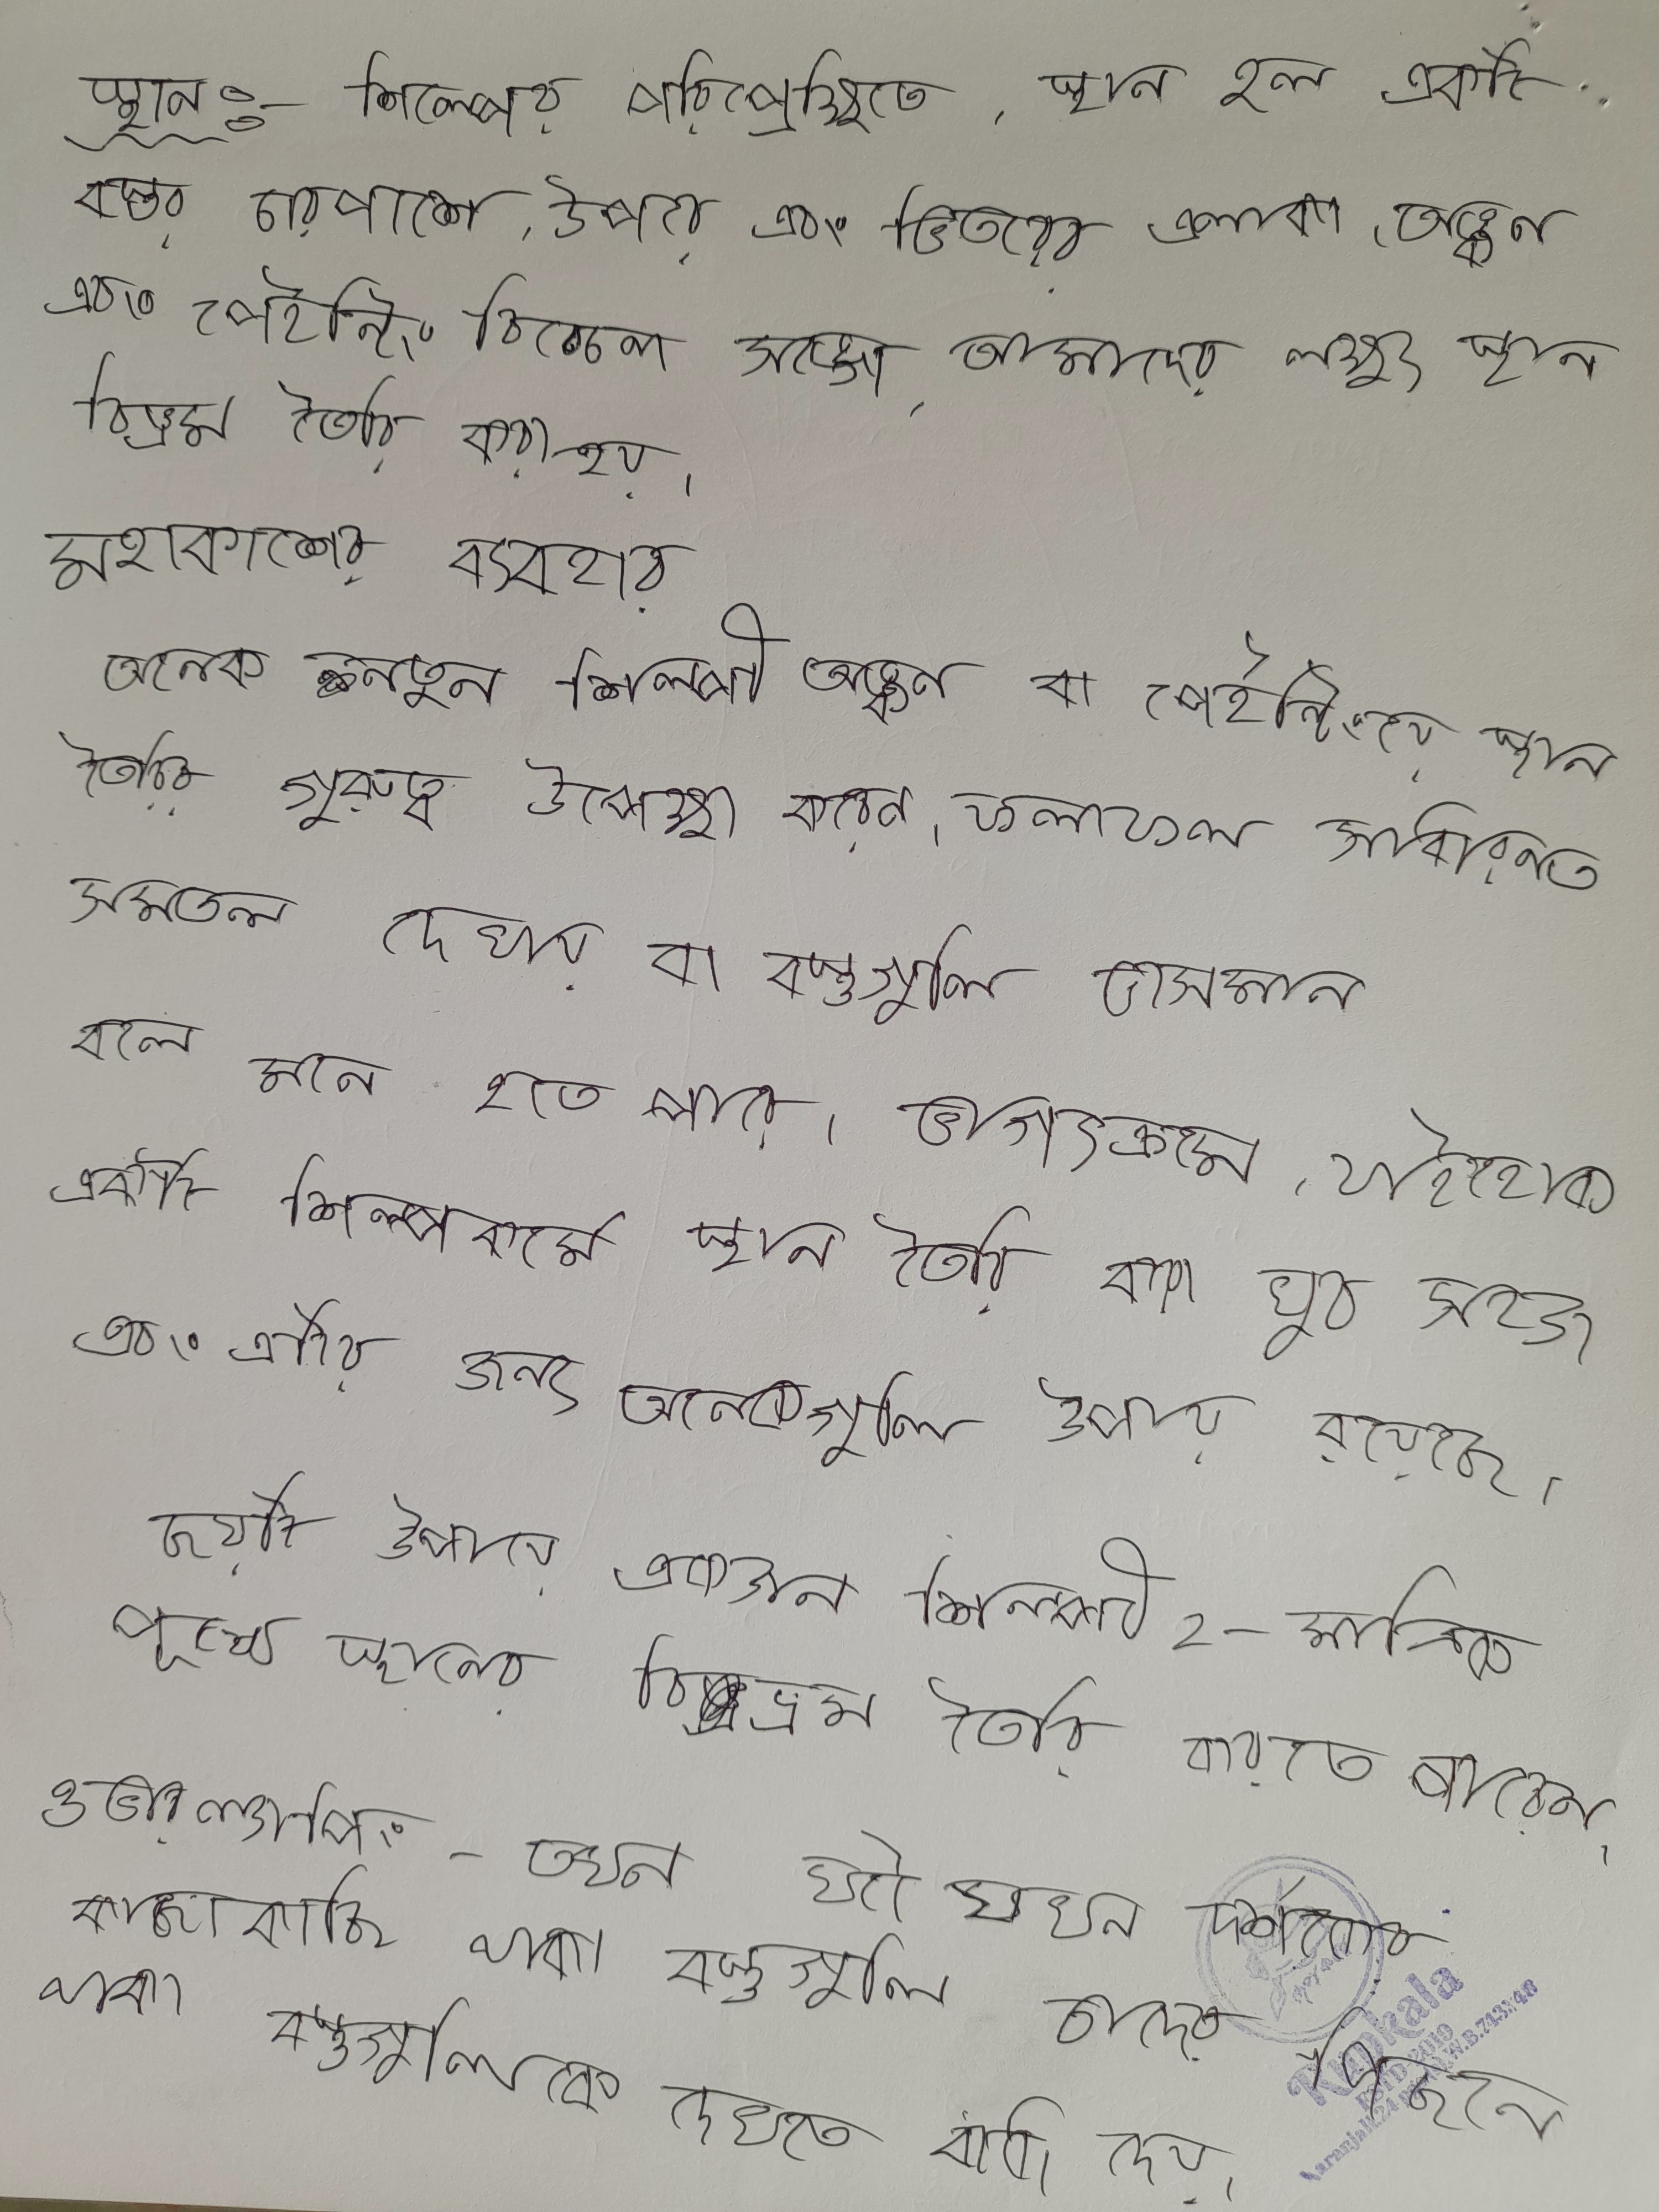 স্থানঃ- শিল্পের পরিপ্রেক্ষিতে, স্থান হল একটি
বস্তুর চারপাশে, উপরে এবং ভিতরের এলাকা, অঙ্কন
এবং পেইন্টিং বিবেচনা সাপেক্ষে, আমাদের লক্ষ্য স্থান
বিভ্রম তৈরি করা হয়।
মহাকাশের ব্যবহার
অনেক নতুন শিল্পী অঙ্কন বা পেইন্টিংয়ে স্থান
তৈরির গুরুত্ব উপেক্ষা করেন, ফলাফল সাধারনত
সমতল দেখায় বা বস্তুগুলি ভাসমান
বলে মনে হতে পারে। ভাগ্যক্রমে, যাইহোক
একটি শিল্পকর্মে স্থান তৈরি করা খুব সহজ
এবং এটির জন্য অনেকগুলি উপায় রয়েছে।
ছয়টি উপায়ে একজন শিল্পী ২- মাত্রিক
পৃষ্ঠে স্থানের বিভ্রম তৈরি করতে পারেন,
ওভারল্যাপিং - তখন ঘটে যখন দর্শকের
কাছাকাছি থাকা বস্তুগুলি তাদের পিছনে
থাকা বস্তুগুলিকে দেখতে বাধা দেয়।
Kunkala
ESTD-2019